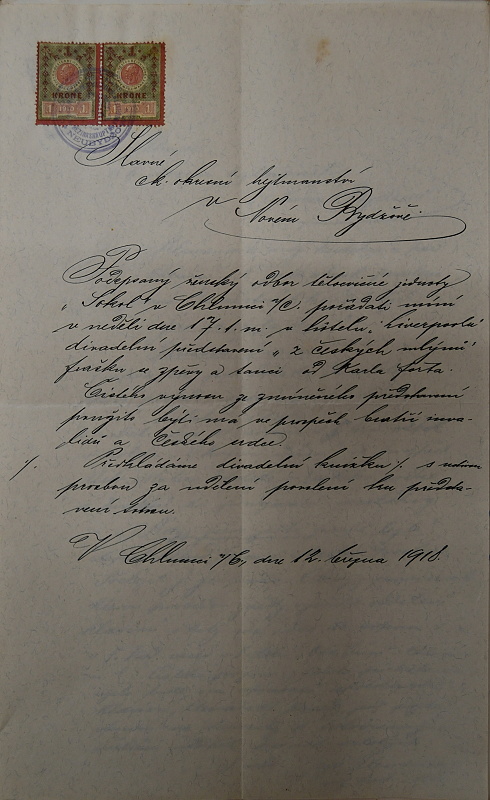 1 1
KRONE KRONE
1 1 1 1
Slavné
ck. okresní hejtmanství
v Novém Bydžově.
Podepsaný ženský odbor tělocvičné jednoty
„Sokol" v Chlumci n/C. pořádati míní
v neděli dne 17. t. m. v hôtelu „Liverpoolu"
divadelní představení „z českých mlýnů"
frašku se zpěvy a tanci od Karla
Čistého výnosu ze zmíněného představení
použito býti má ve prospěch bratří inva-
lidů a Českého srdce.
⁒ Předkládáme divadelní knížku ⁒ s
prosbou za udělení povolení ku předsta-
vení tomu.
V Chlumci n/C, dne 12. března 1918.